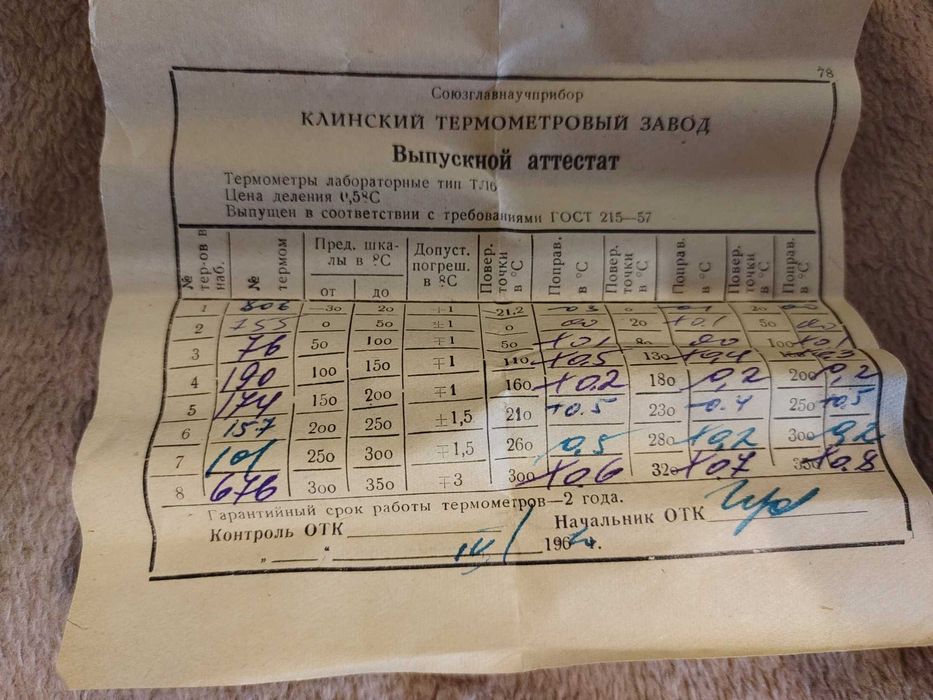 78
Союзглавнаучприбор
КЛИНСКИЙ ТЕРМОМЕТРОВЫЙ ЗАВОД
Выпускной аттестат
Термометры лабораторные тип ТЛ6
Цена деления 0,5°С
Выпущен в соответствии с требованиями ГОСТ 215—57
№ тер-ов в наб. № термом Пред. шка-лы в °С от до Допуст. погреш. в °С Повер. точки в °С Поправ. в °С Повер. точки в °С Поправ. в °С Повер. точки в °С Поправ. в °С
1 806 —30 20 ∓1 —21,2 0 20
2 755 0 50 ∓1 0 20 +0.1 50
3 76 50 100 ∓1 +0,1 100 +0,1
4 190 100 150 ∓1 110 +0,5 130 +0,4
5 174 150 200 ∓1 160 +0.2 180 0,2 200 0,2
6 157 200 250 ±1,5 210 +0.5 230 —0.4 250 +0,5
7 101 250 300 ∓1,5 260 0,5 280 +0,2 300 0,2
8 676 300 350 ∓3 300 +0.6 320 +0,7 +0.8
Гарантийный срок работы термометров—2 года.
Контроль ОТК Начальник ОТК
„ “ IV 196 г.